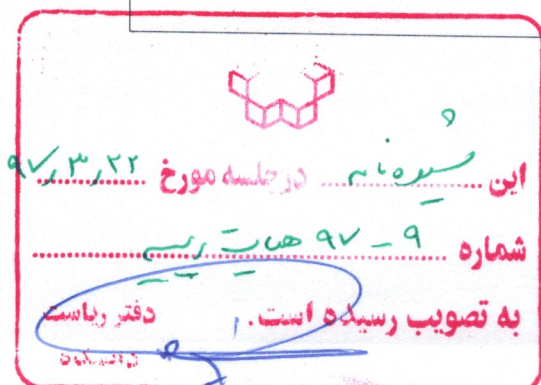 این شیوه‌نامه در جلسه مورخ ۹۷٫۳٫۲۲
شماره ۹ – ۹۷ هیات رییسه
به تصویب رسیده است.
دفتر ریاست
دانشکده